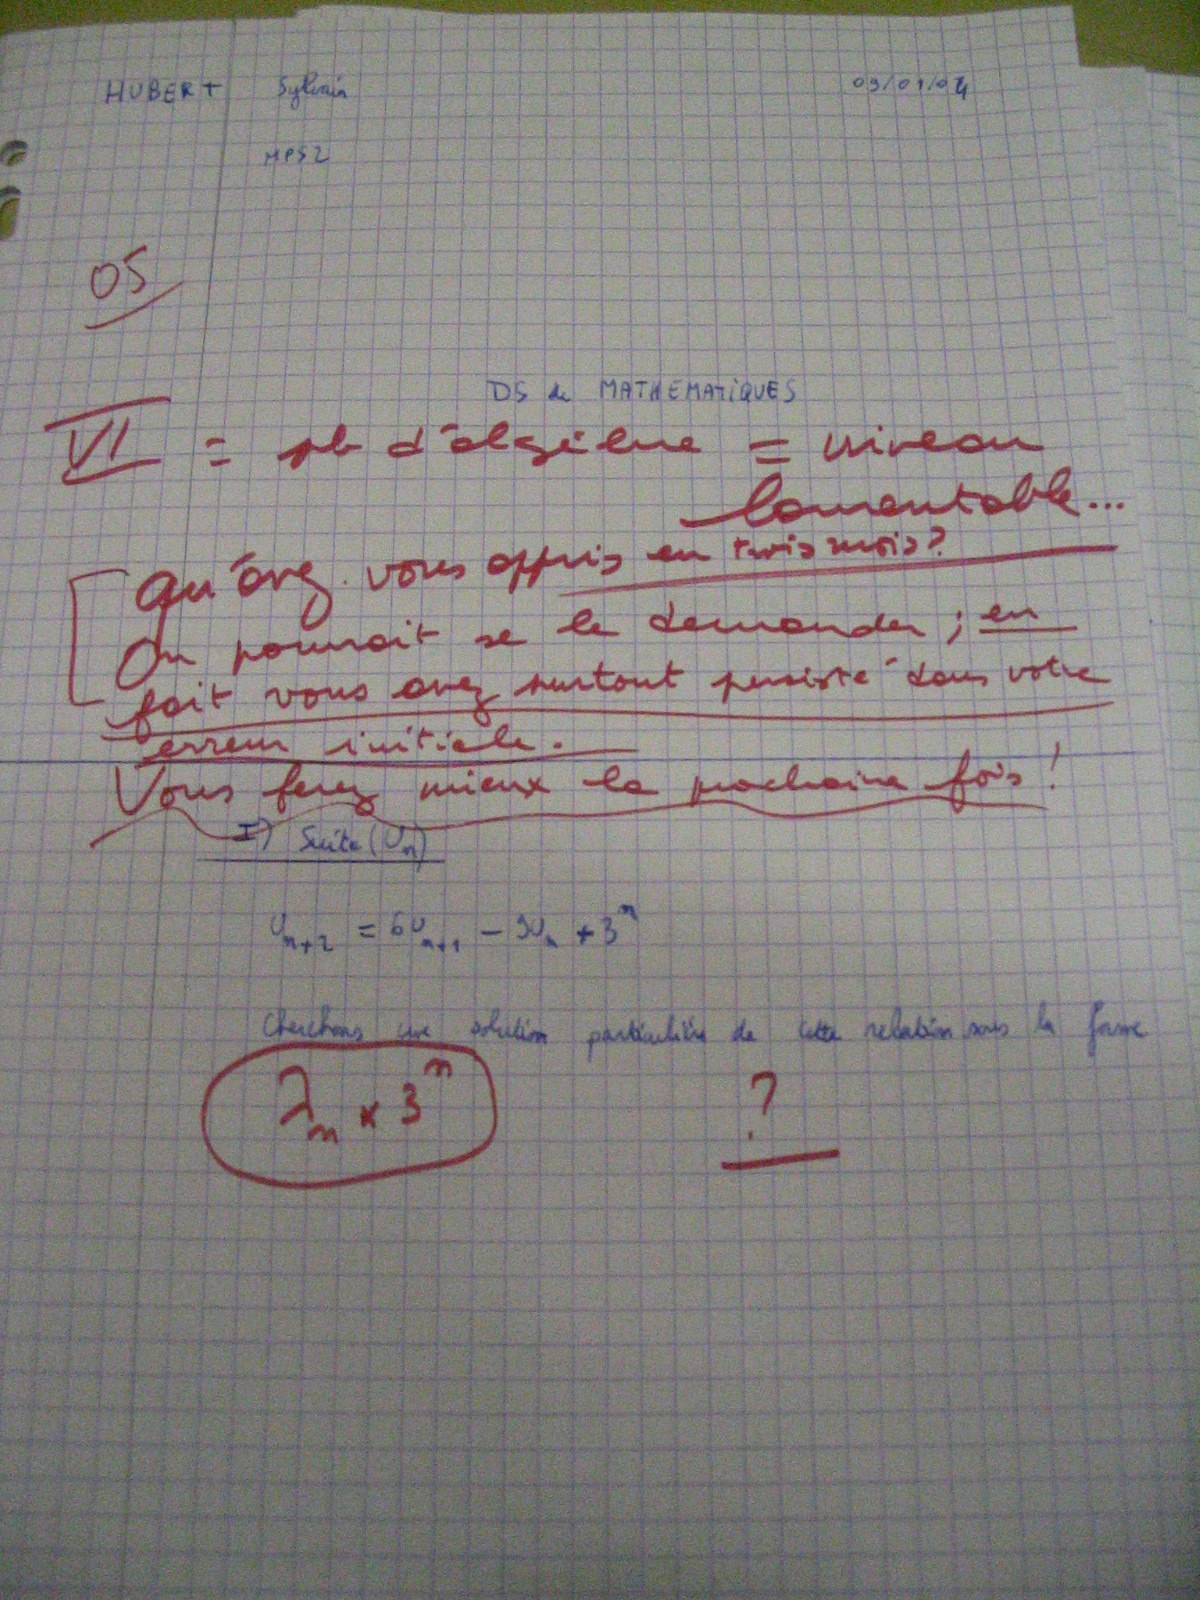 HUBERT Sylvain 09/01/04
MPSI 2
05
DS de MATHEMATIQUES
VI = pb d'algèbre = niveau
lamentable...
Qu'avez vous appris en trois mois?
On pourrait se le demander ; en
fait vous avez surtout persisté dans votre
erreur initiale.
Vous ferez mieux la prochaine fois !
I) Suite (Un)
Un+2 = 6Un+1 - 9Un + 3^n
Cherchons une solution particulière de cette relation sous la forme
λn × 3^n ?